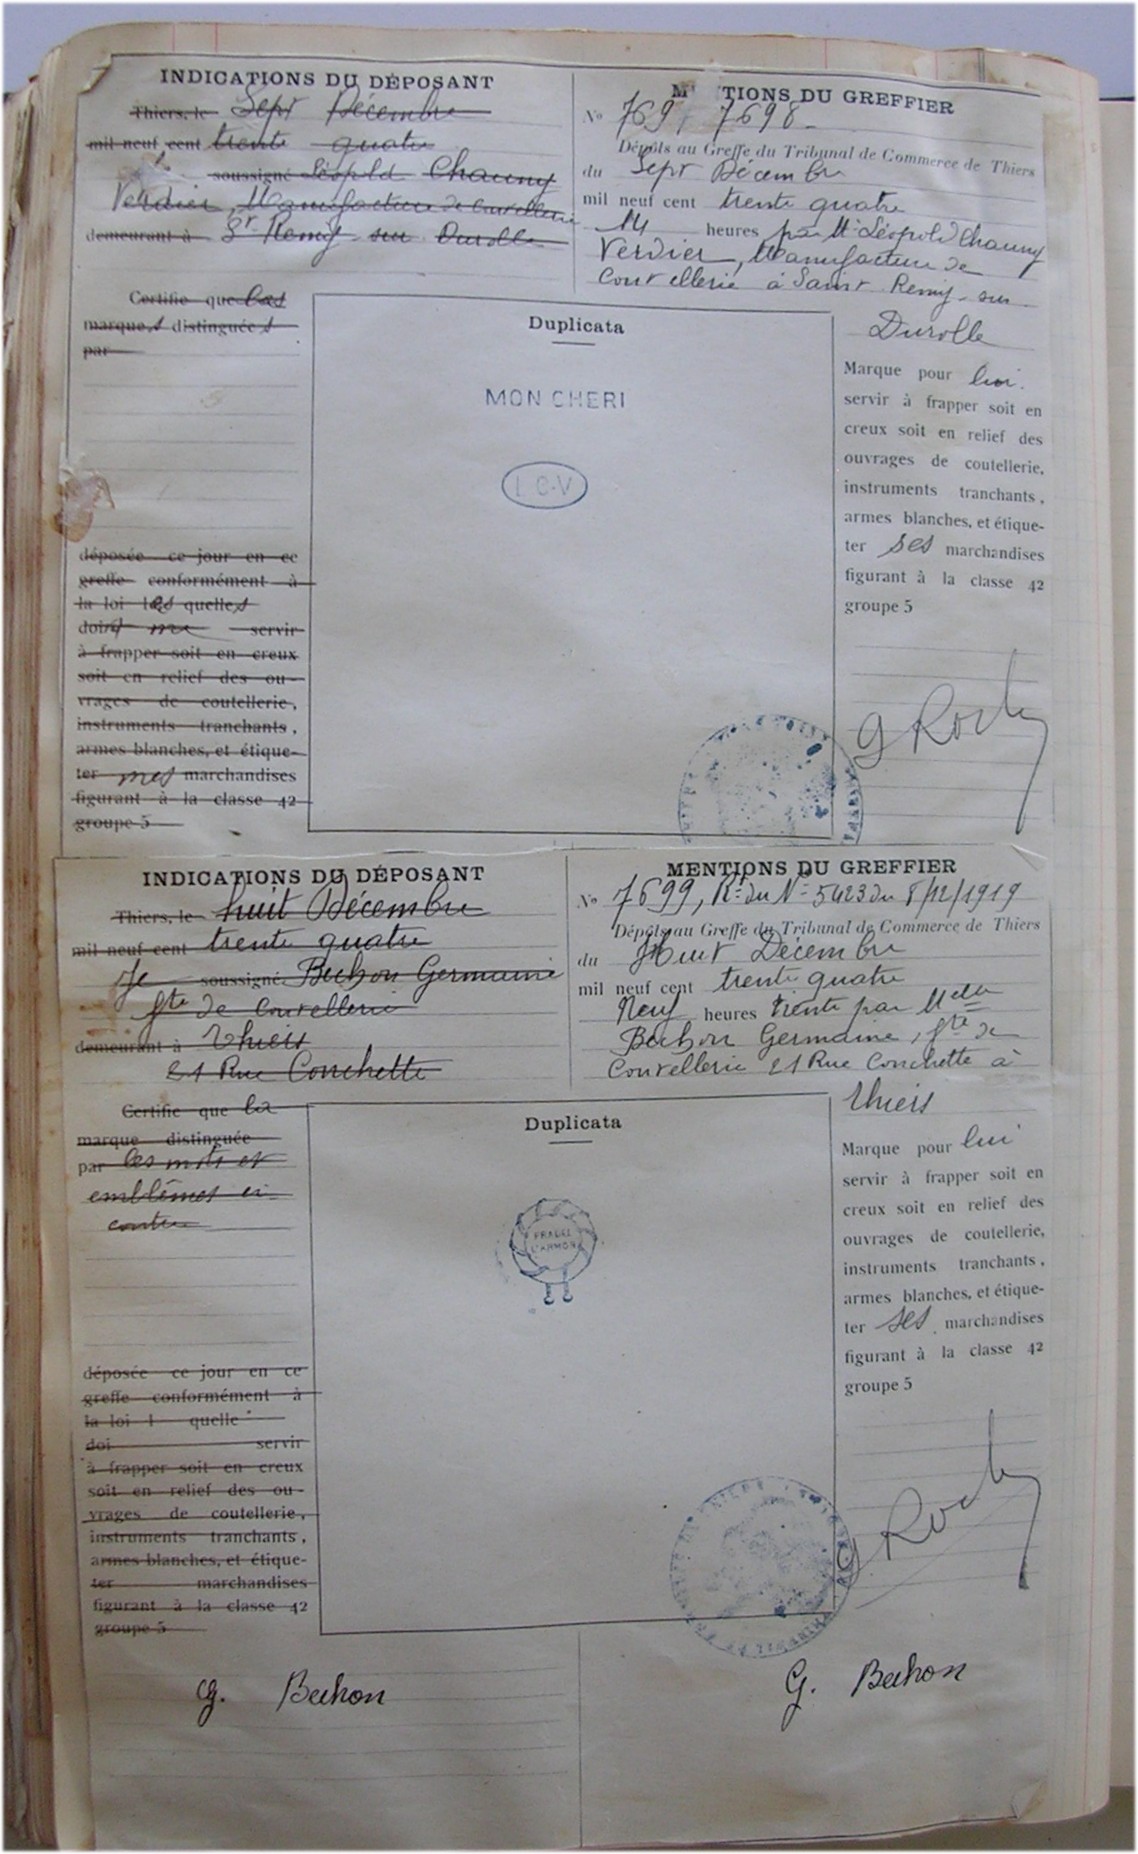 INDICATIONS DU DÉPOSANT
Thiers, le Sept Décembre
mil neuf cent trente quatre
soussigné Léopold Chauny
Verdier, Manufacture de Coutellerie
demeurant à St Remy sur Durolle
Certifie que les
marques distinguées
par
déposée ce jour en ce
greffe conformément à
la loi lesquelles
doivt me servir
à frapper soit en creux
soit en relief des ou-
vrages de coutellerie,
instruments tranchants,
armes blanches, et étique-
ter mes marchandises
figurant à la classe 42
groupe 5
Duplicata
MON CHERI
L C-V
M TIONS DU GREFFIER
No 769 7698-
Dépôts au Greffe du Tribunal de Commerce de Thiers
du Sept Décembre
mil neuf cent trente quatre
14 heures par Mr Léopold Chauny
Verdier, Manufacture de
Coutellerie à Saint Remy-sur
Durolle
Marque pour lui
servir à frapper soit en
creux soit en relief des
ouvrages de coutellerie,
instruments tranchants,
armes blanches, et étique-
ter ses marchandises
figurant à la classe 42
groupe 5
G Roch
INDICATIONS DU DÉPOSANT
Thiers, le huit Décembre
mil neuf cent trente quatre
Je soussigné Bechon Germaine
fte de Coutellerie
demeurant à Thiers
21 Rue Conchette
Certifie que la
marque distinguée
par les mots et
emblêmes ci-
contre
déposée ce jour en ce
greffe conformément à
la loi l quelle
doi servir
à frapper soit en creux
soit en relief des ou-
vrages de coutellerie,
instruments tranchants,
armes blanches, et étique-
ter marchandises
figurant à la classe 42
groupe 5
G. Bechon
Duplicata
PRADEL
L'ARMONY
MENTIONS DU GREFFIER
No 7699, Rt du No 5423 du 8/12/1919
Dépôts au Greffe du Tribunal de Commerce de Thiers
du Huit Décembre
mil neuf cent trente quatre
Neuf heures trente par Melle
Bechon Germaine, fte de
Coutellerie 21 Rue Conchette à
Thiers
Marque pour lui
servir à frapper soit en
creux soit en relief des
ouvrages de coutellerie,
instruments tranchants,
armes blanches, et étique-
ter ses marchandises
figurant à la classe 42
groupe 5
G Roch
G. Bechon